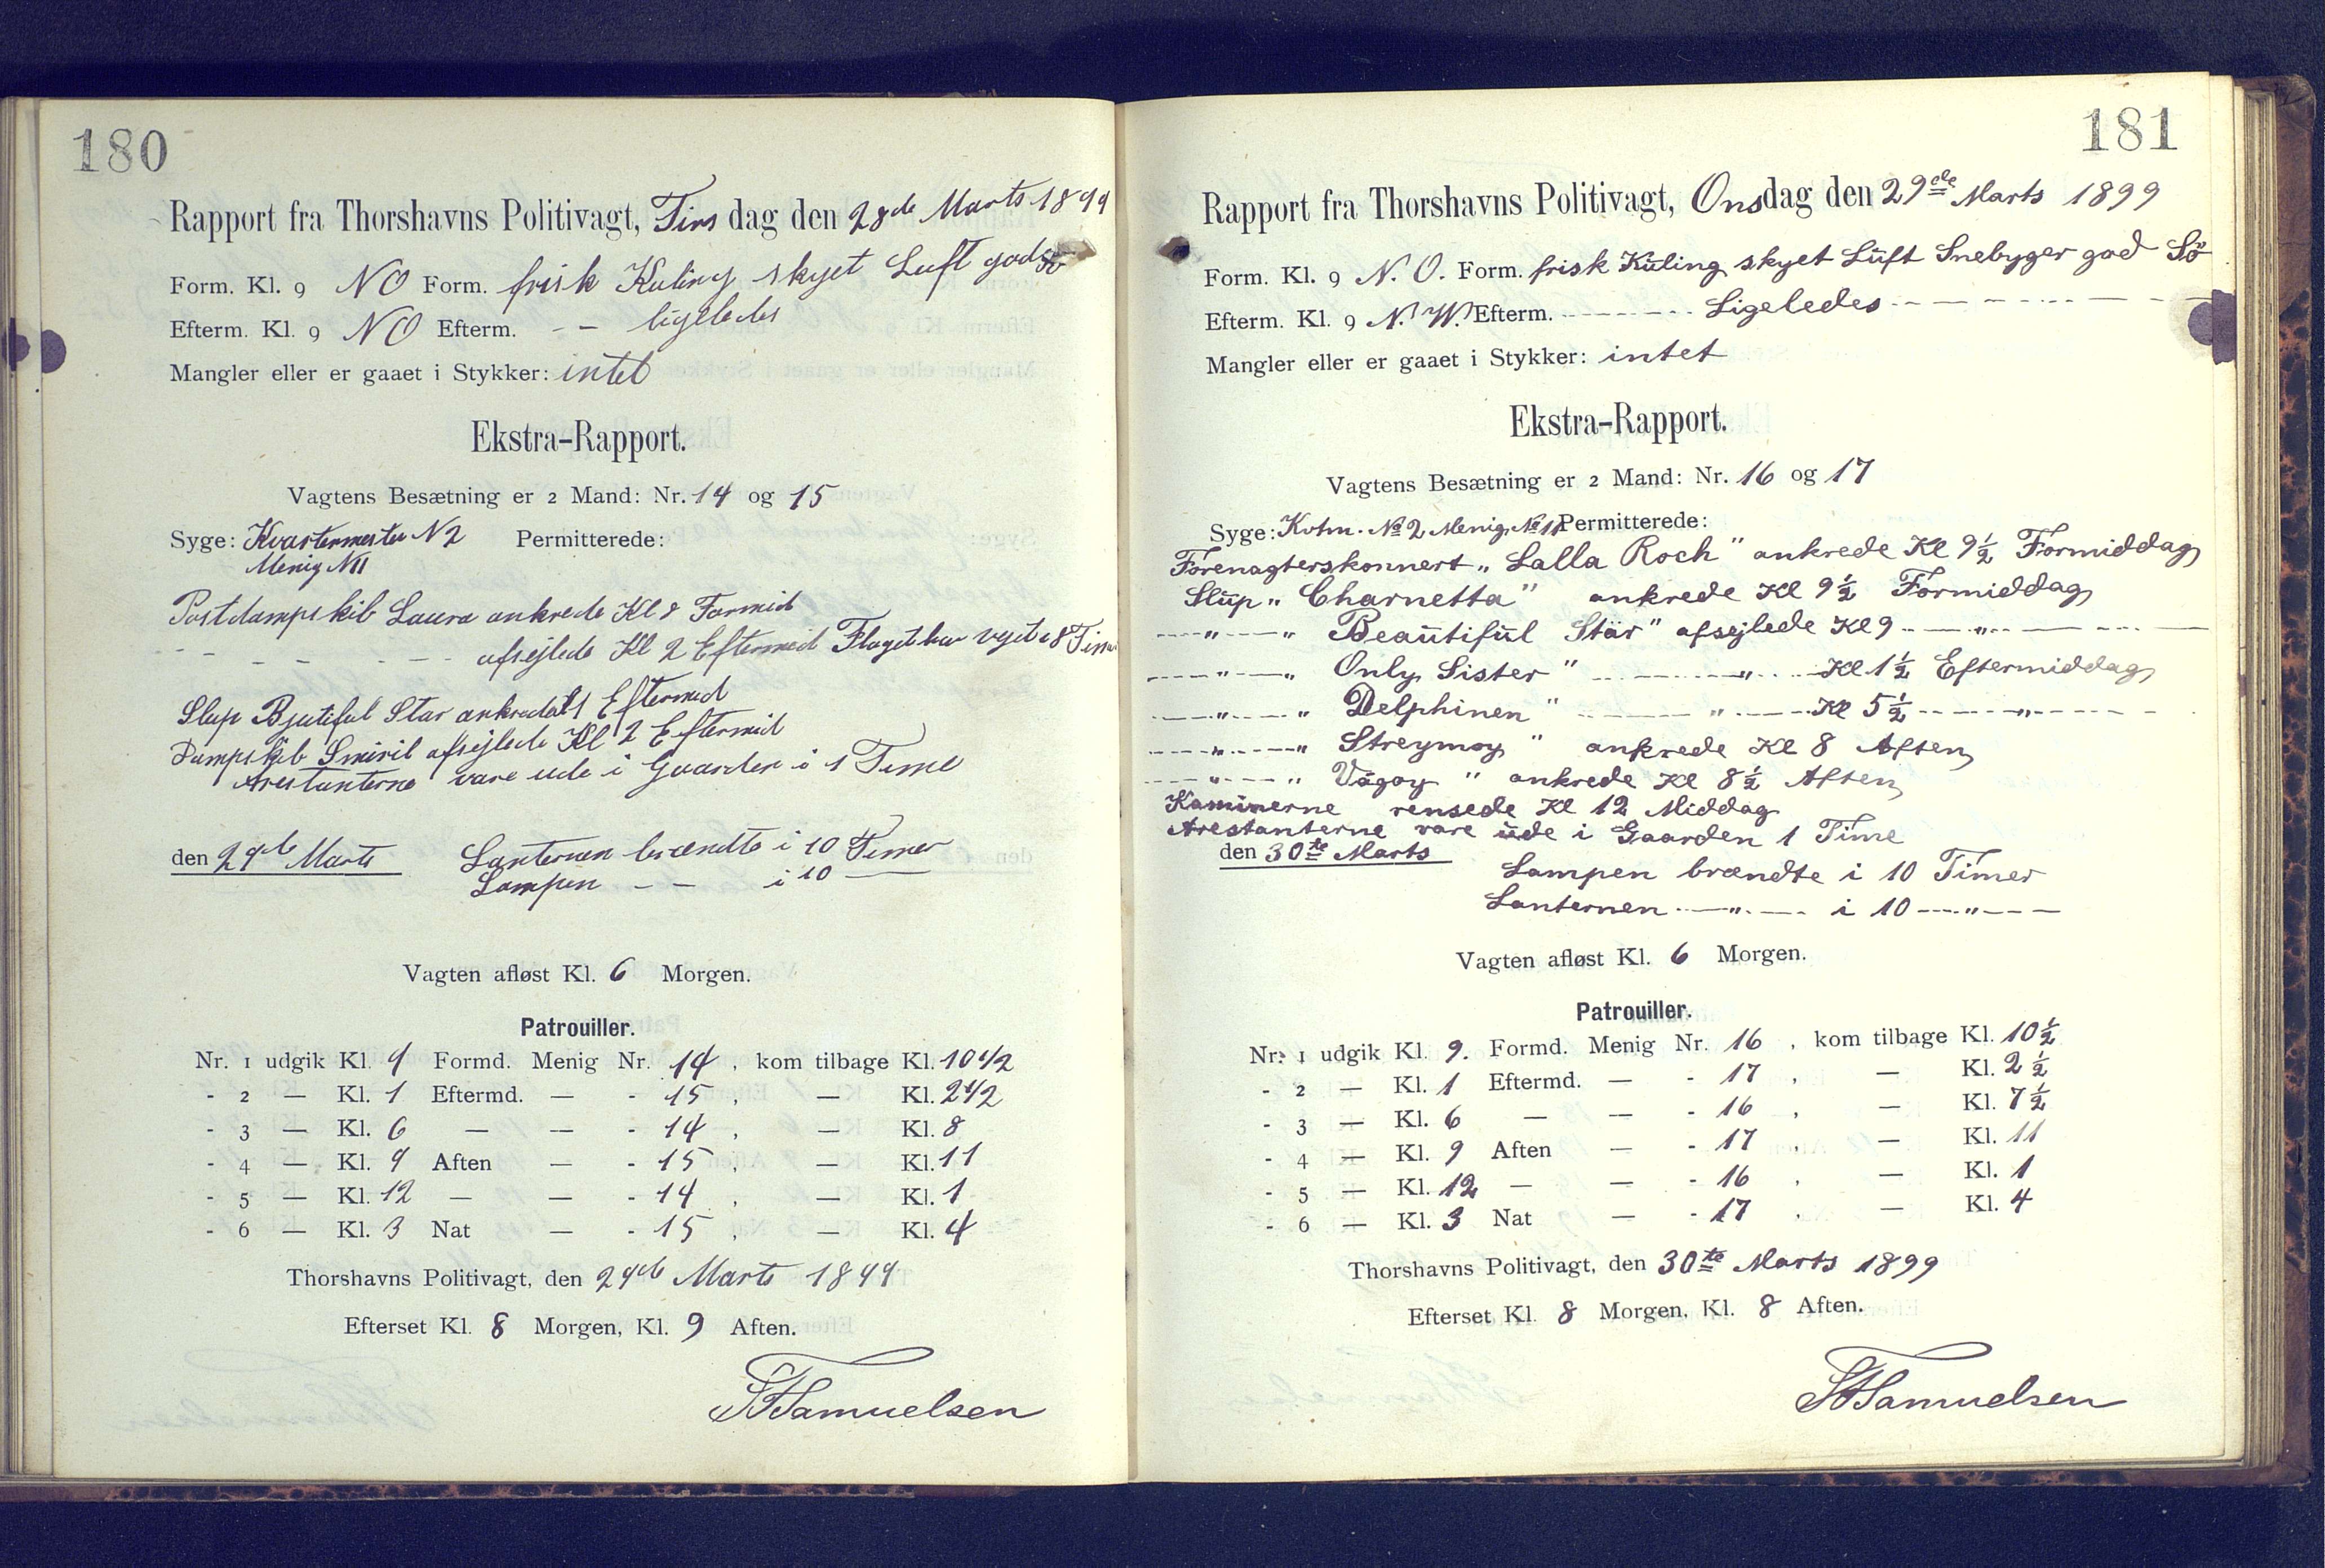 180
Rapport fra Thorshavns Politivagt, Tirsdag den 28de Marts 1899
Form. Kl. 9 NO Form. frisk Kuling skyet Luft god Sö
Efterm. Kl. 9 NO Efterm. – – ligeledes
Mangler eller er gaaet i Stykker: intet
Ekstra-Rapport.
Vagtens Besætning er 2 Mand: Nr. 14 og 15
Syge: Kvartermester N 2 Permitterede:
Menig N 11
Postdampskib Laura ankrede Kl 8 Formid
- - - - - - afsejlede Kl 2 Eftermid Flaget har vejet i 8 Timer
Slup Bjutiful Star ankrede Kl 1 Eftermid
Dampskib Smiril afsejlede Kl 2 Eftermid
Arestanterne vare ude i Gaarden i 1 Time
den 29de Marts Lanternen brændte i 10 Timer
Lampen – – i 10 —
Vagten afløst Kl. 6 Morgen.
Patrouiller.
Nr. 1 udgik Kl. 9 Formd. Menig Nr. 14, kom tilbage Kl. 10 1/2
- 2 — Kl. 1 Eftermd. — - 15, — Kl. 2 1/2
- 3 — Kl. 6 — — - 14, — Kl. 8
- 4 — Kl. 9 Aften — - 15, — Kl. 11
- 5 — Kl. 12 — — - 14, — Kl. 1
- 6 — Kl. 3 Nat — - 15, — Kl. 4
Thorshavns Politivagt, den 29de Marts 1899
Efterset Kl. 8 Morgen, Kl. 9 Aften.
Samuelsen
181
Rapport fra Thorshavns Politivagt, Onsdag den 29de Marts 1899
Form. Kl. 9 N. O. Form. frisk Kuling skyet Luft Snebyger god Sö
Efterm. Kl. 9 N. W. Efterm. - - - - Ligeledes - - - -
Mangler eller er gaaet i Stykker: intet
Ekstra-Rapport.
Vagtens Besætning er 2 Mand: Nr. 16 og 17
Syge: Kvtm. No 2 Menig No 11 Permitterede:
Forenagterskonnert „ Lalla Roch " ankrede Kl 9 1/2 Formiddag
Slup „ Charnetta " ankrede Kl 9 1/2 Formiddag
— " — „ Beautiful Stár " afsejlede Kl 9 — " —
— " — „ Only Sister " — " — Kl 1 1/2 Eftermiddag
— " — „ Delphinen " — " — Kl 5 1/2 — " —
— " — „ Streymoy " ankrede Kl 8 Aften
— " — „ Vágoy " ankrede Kl 8 1/2 Aften
Kaminerne rensede Kl 12 Middag
Arestanterne vare ude i Gaarden 1 Time
den 30te Marts
Lampen brændte i 10 Timer
Lanternen — " — i 10 — " —
Vagten afløst Kl. 6 Morgen.
Patrouiller.
Nr. 1 udgik Kl. 9. Formd. Menig Nr. 16, kom tilbage Kl. 10 1/2
- 2 — Kl. 1 Eftermd. — - 17, — Kl. 2 1/2
- 3 — Kl. 6 — — - 16, — Kl. 7 1/2
- 4 — Kl. 9 Aften — - 17, — Kl. 11
- 5 — Kl. 12 — — - 16, — Kl. 1
- 6 — Kl. 3 Nat — - 17, — Kl. 4
Thorshavns Politivagt, den 30te Marts 1899
Efterset Kl. 8 Morgen, Kl. 8 Aften.
Samuelsen